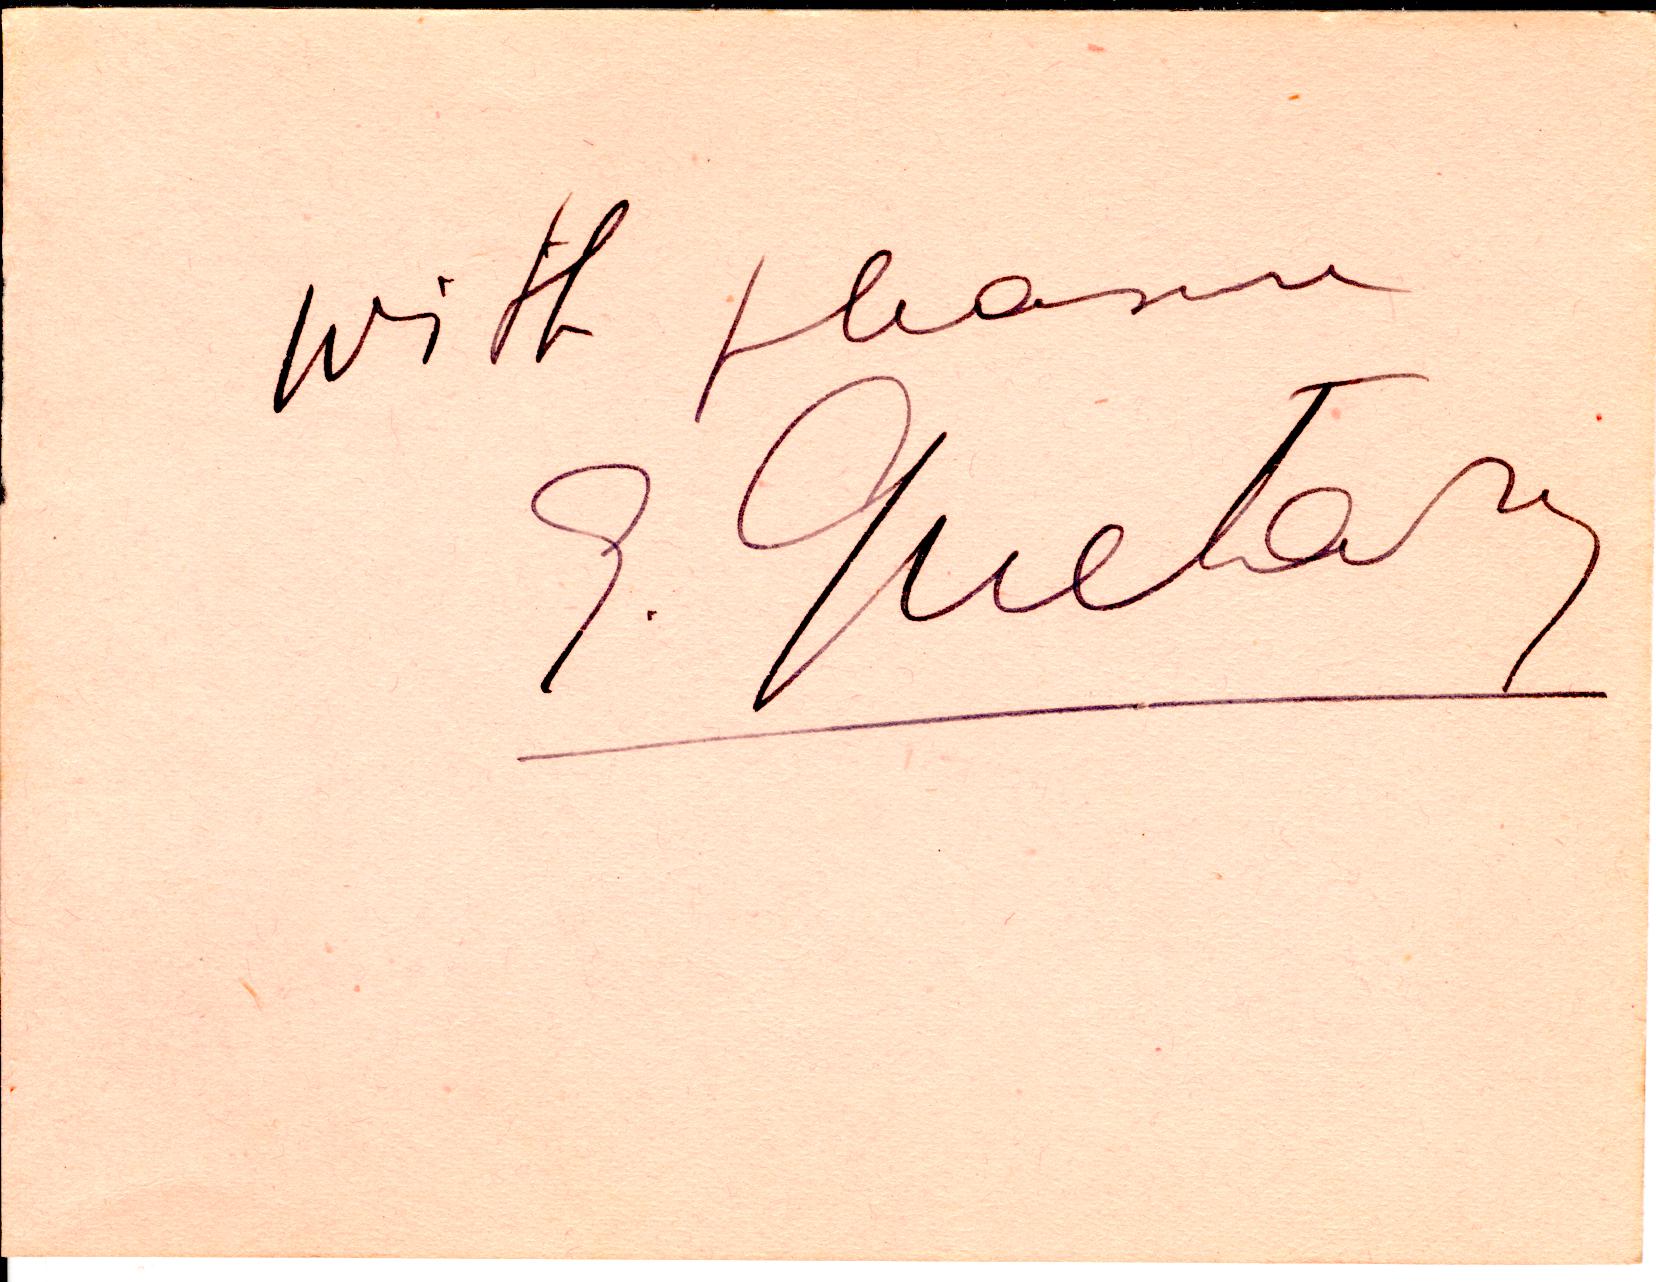 with pleasure
G. Guetary